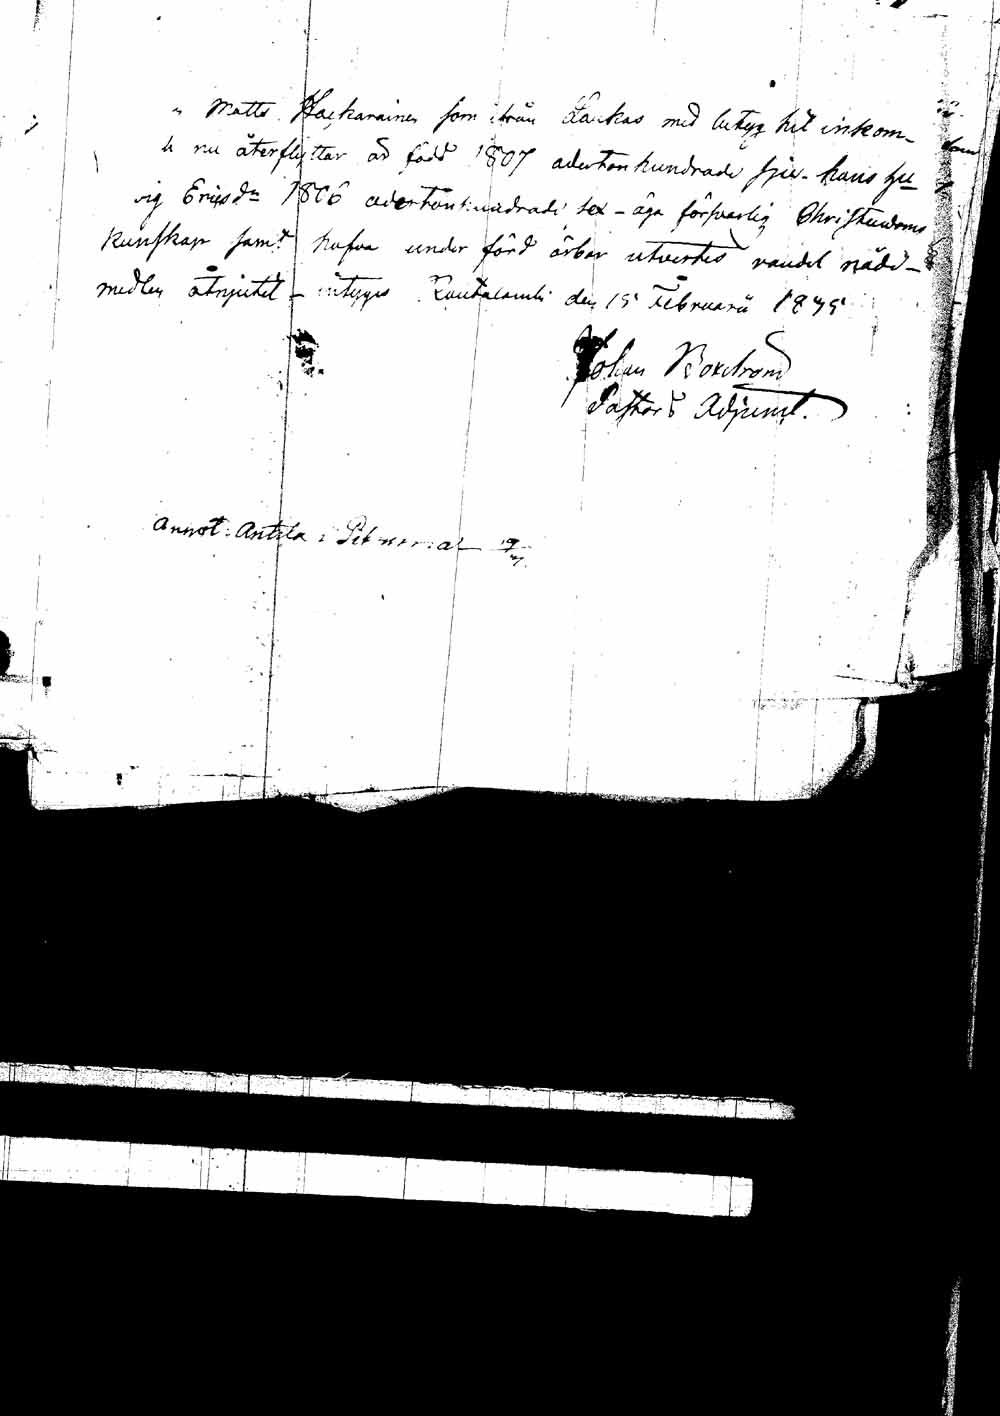 Matts Hackarainen som ifrån Laukas med betyg hit inkom-
nu återflyttar är född 1807 adertonhundrade sju - hans hu-
Ericsdr 1806 adertonhundrade sex - äga försvarlig Christendoms
kunskap samt hafva under fördt ärbar utvertes vandel nåde-
medlen åtnjutit - intygas Rautalambi den 15 Februarii 1835
Johan
Pastors Adjunct.
Annot: Antila i